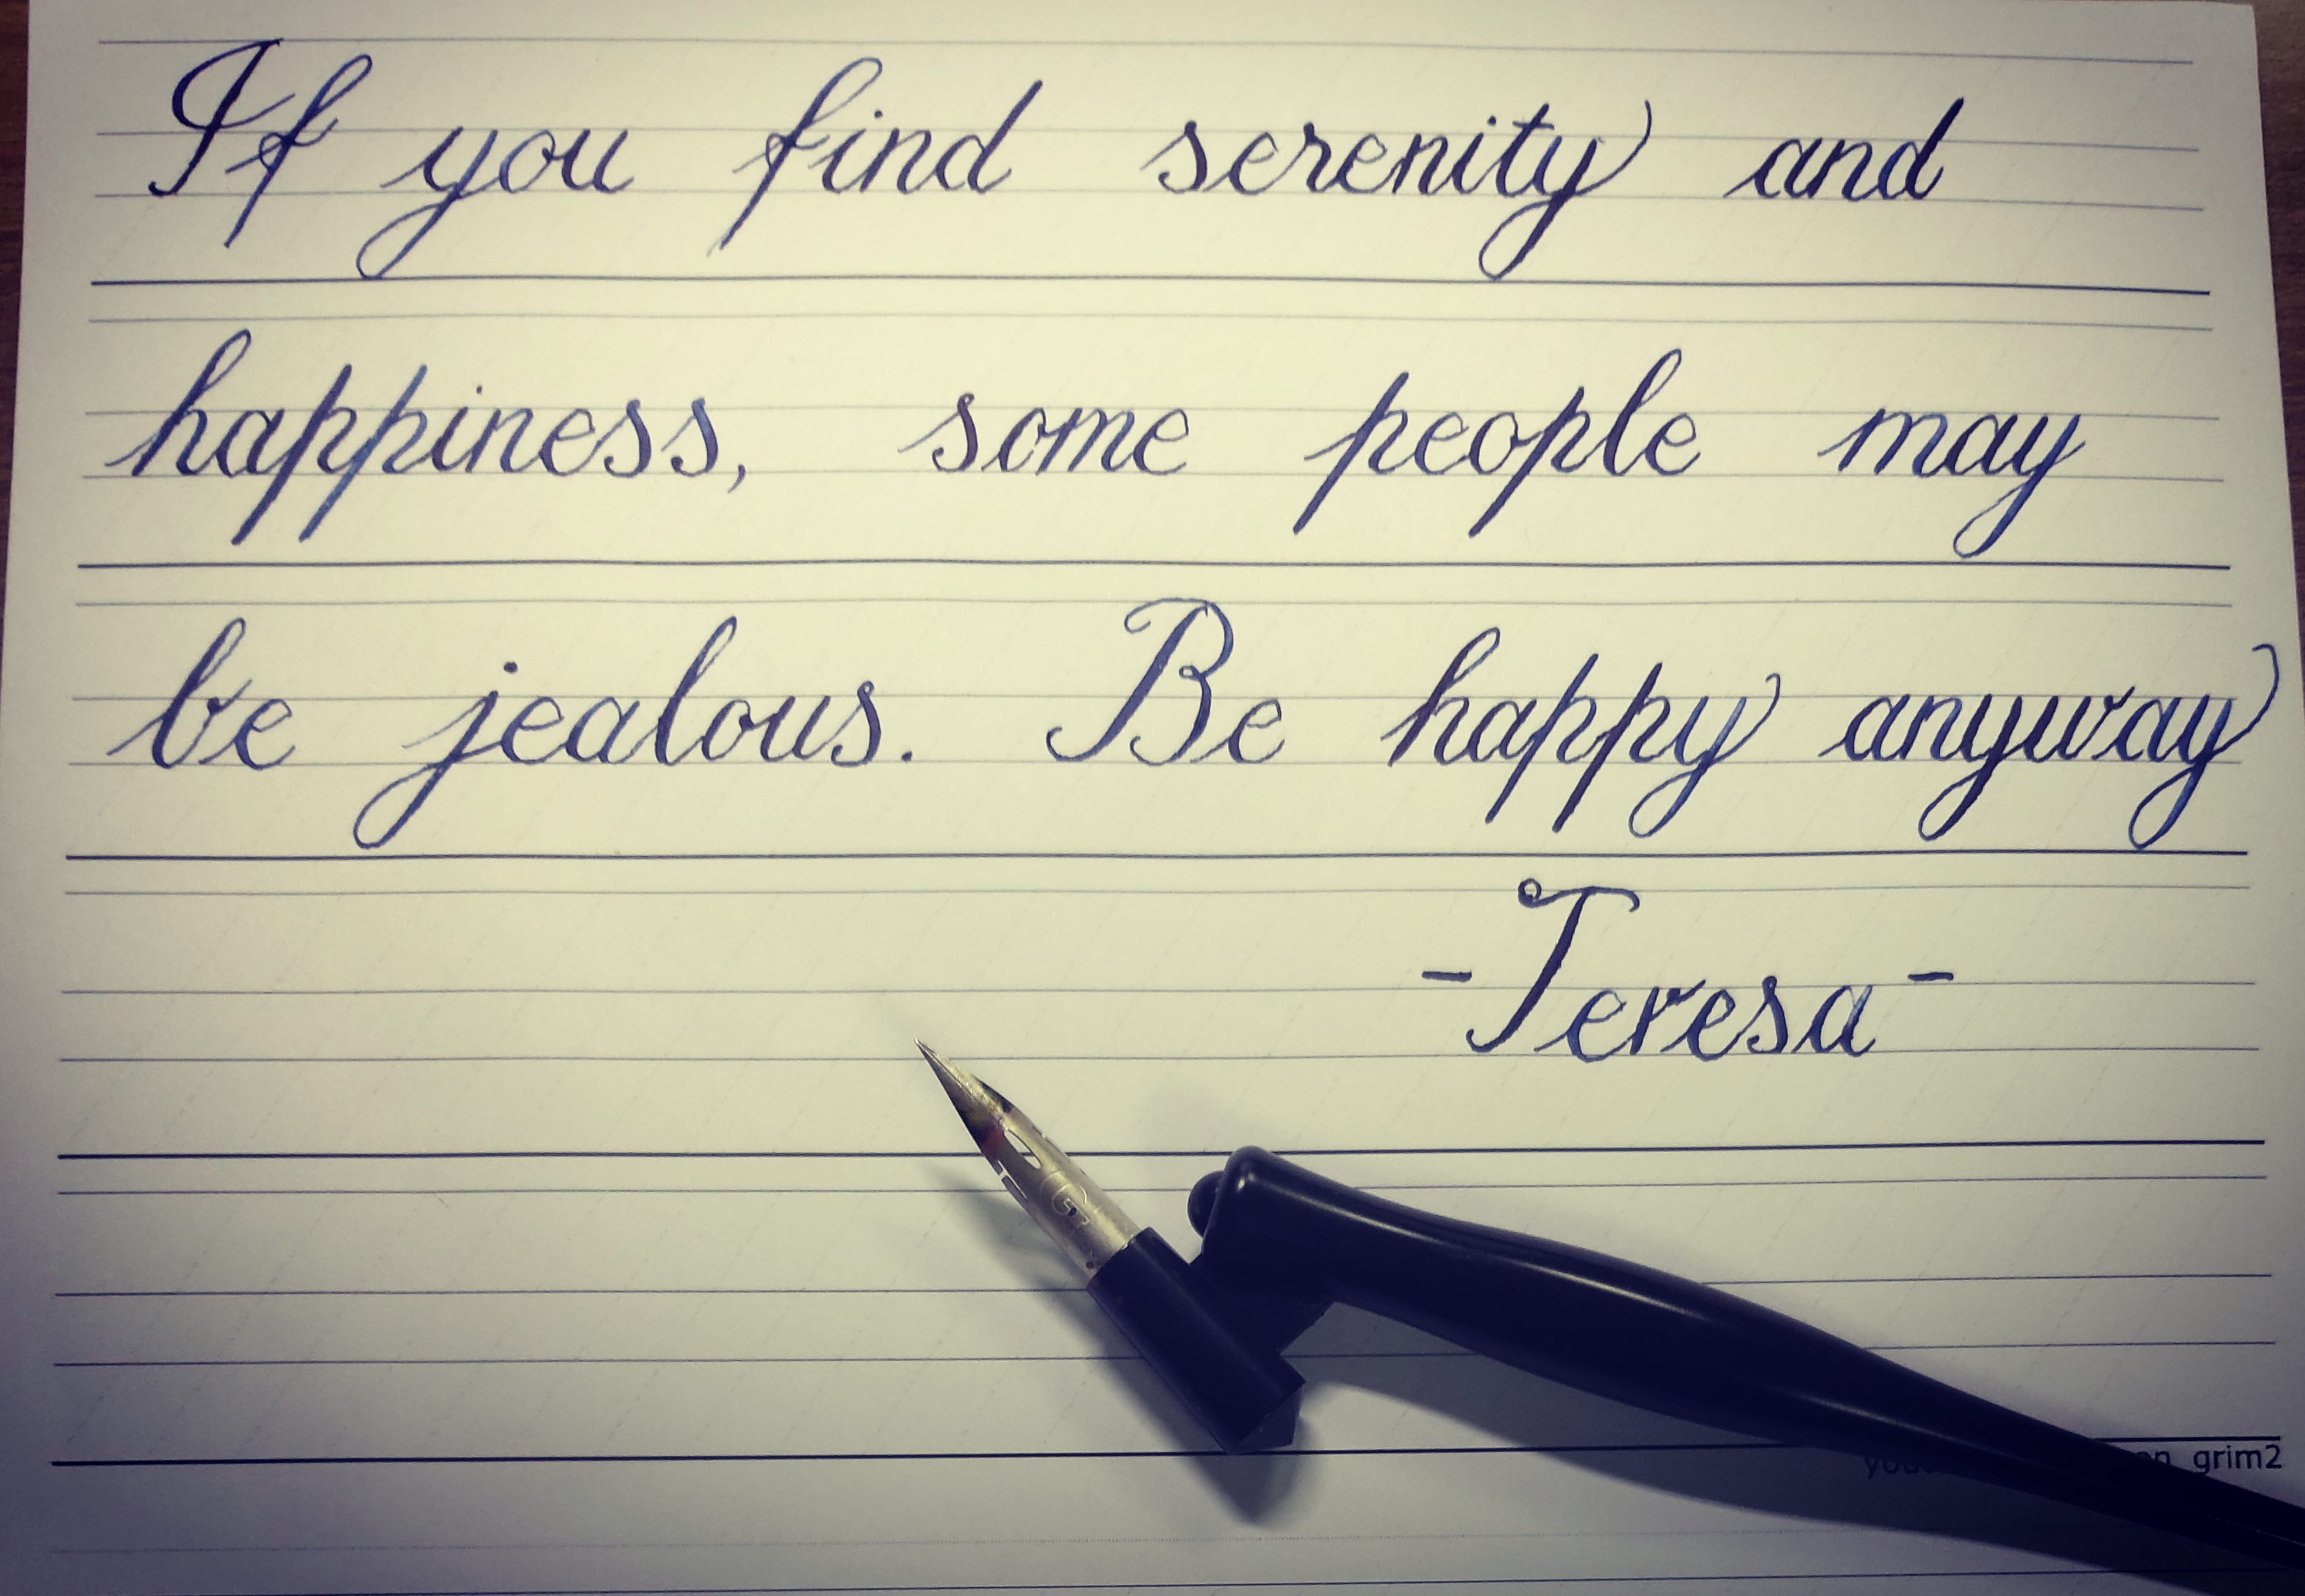 If you find serenity and
happiness, some people may
be jealous. Be happy anyway
-Teresa-
grim2